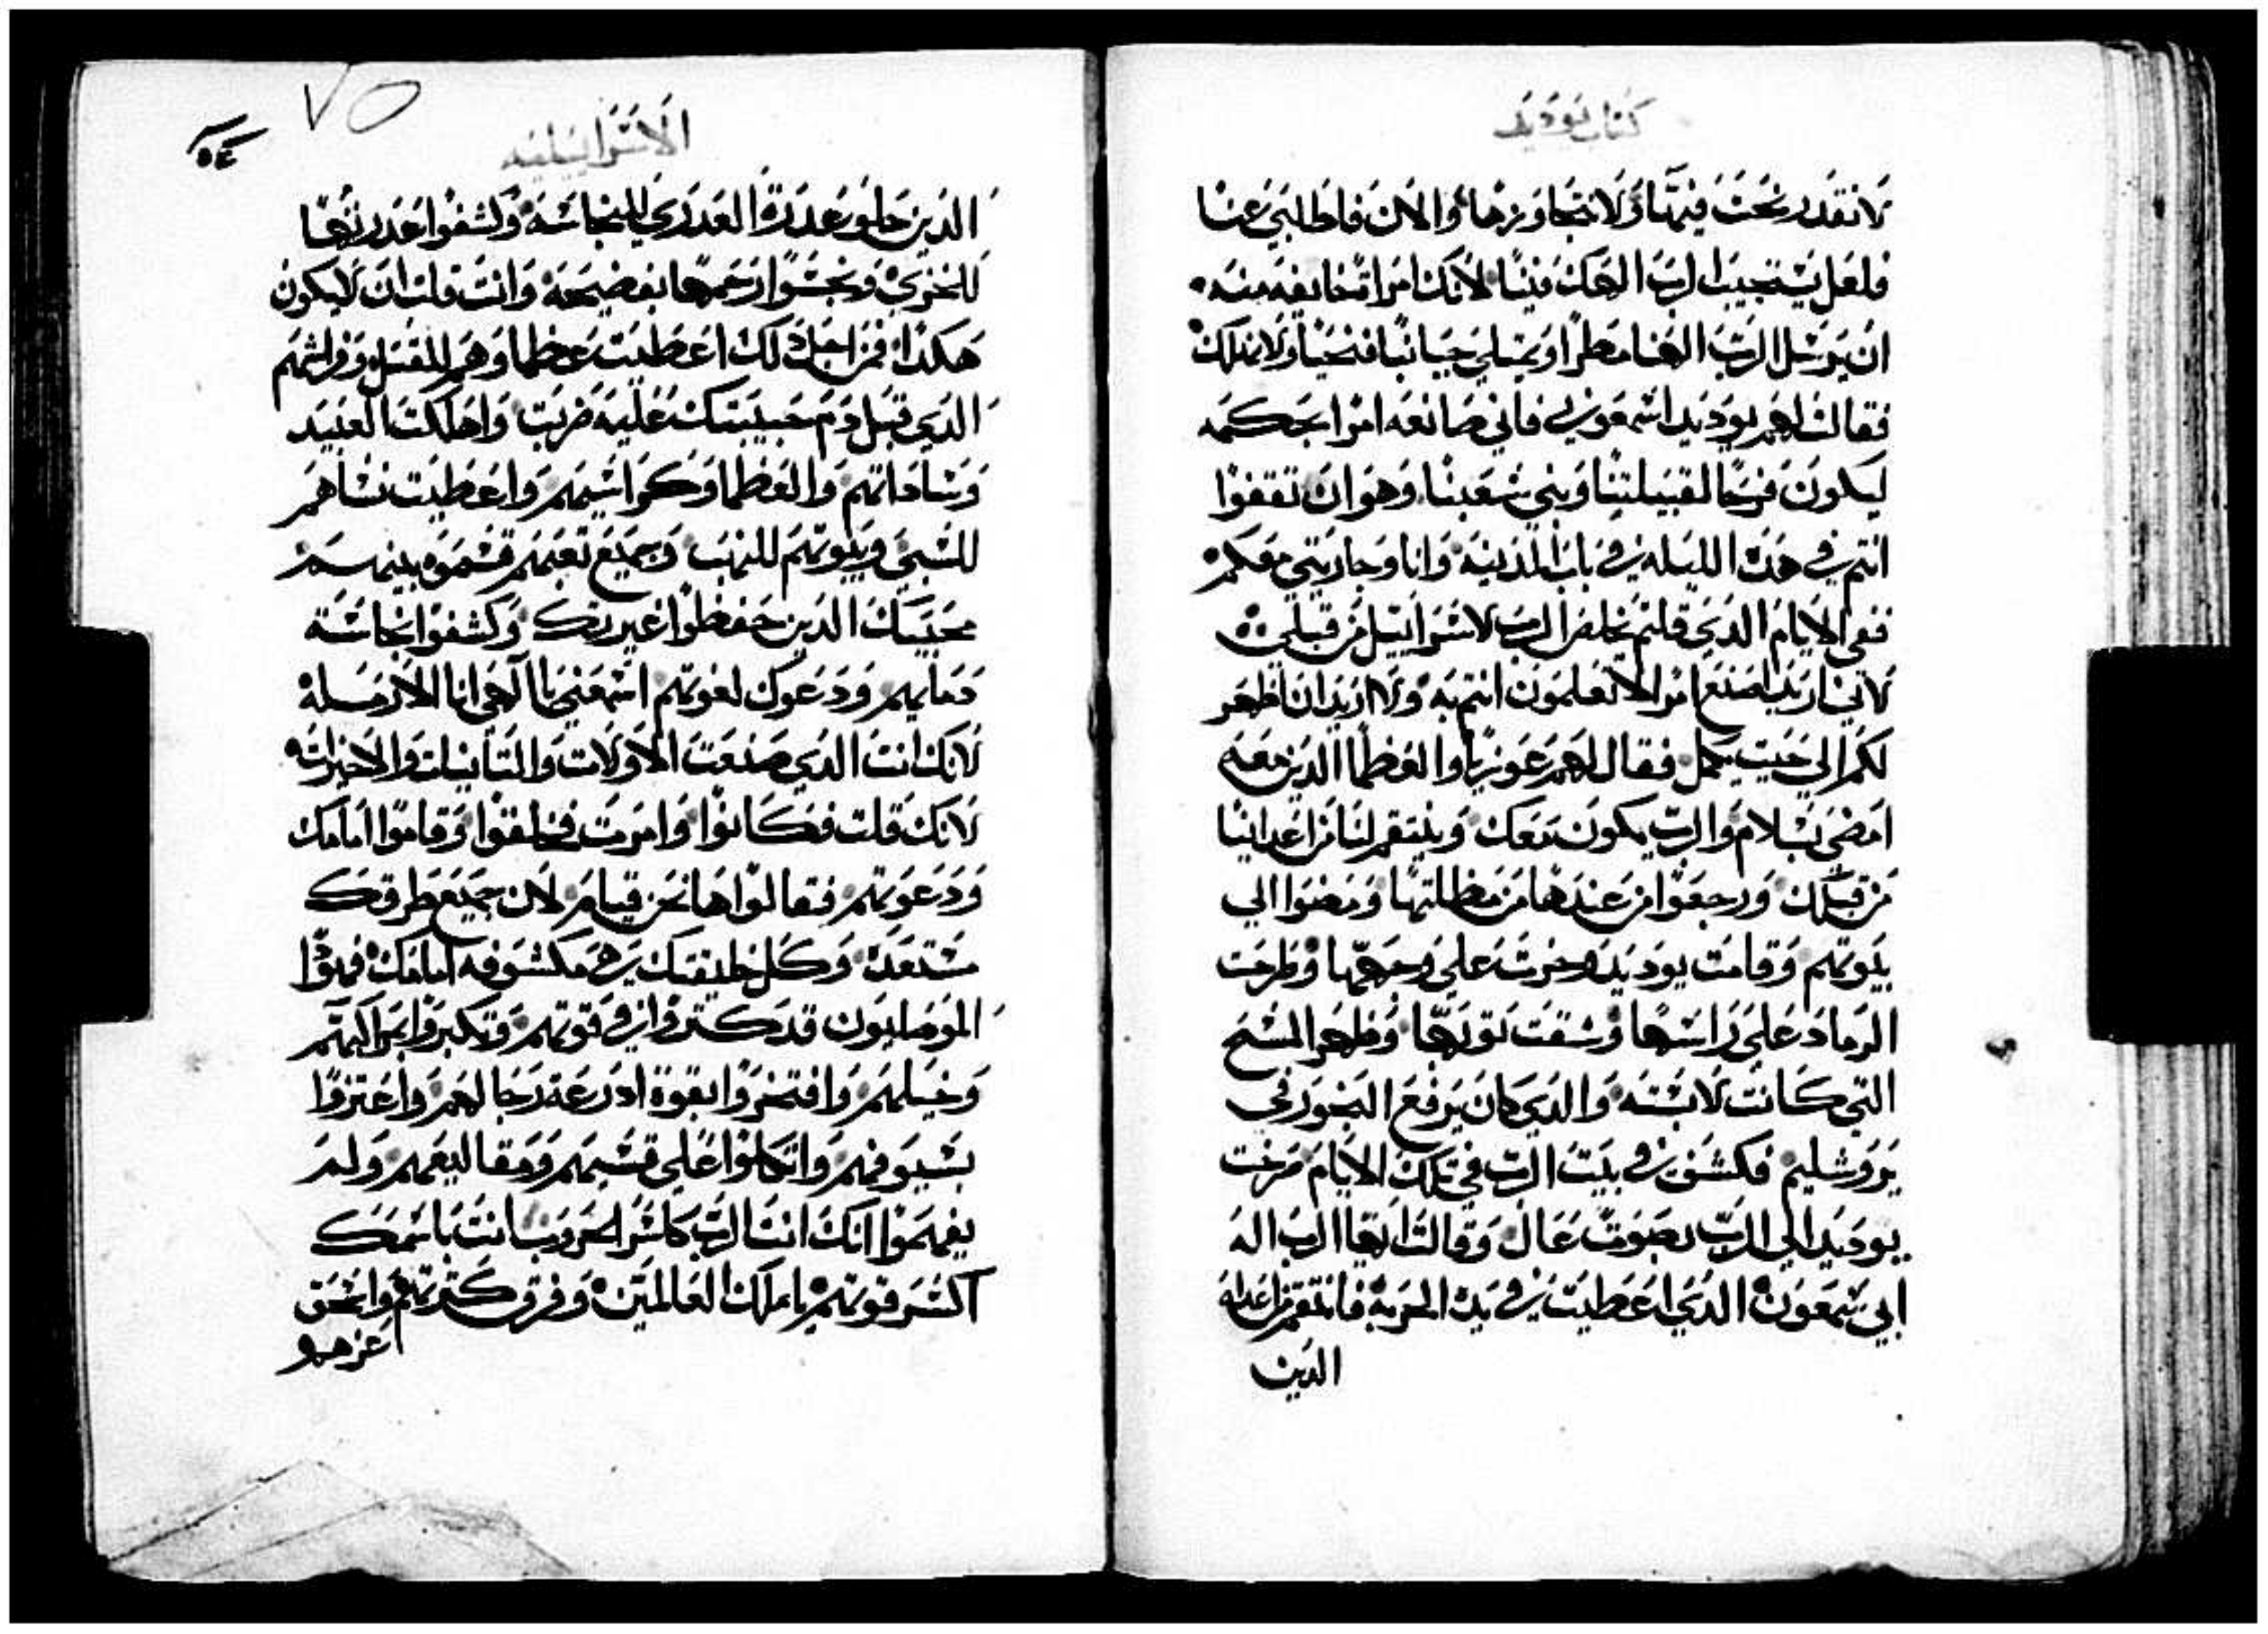 كتاب يوديد
لا نقدر نحنث فيها ولا نتجاوزها والان فاطلبي عنا
فلعل يستجيب الرب الهك فينا لانك امراه خايفه منه
ان يرسل الرب الهنا مطرا ويملي جبابنا فنحيا ولا نهلك
فقالت لهم يوديد اسمعوني فاني صانعه امرا بحكمه
ليكون فرحا لقبيلتنا وبني شعبنا وهو ان تقفوا
انتم في هذه الليله في باب المدينه وانا وجاريتي معكم
ففي الايام الذي قلتم يخلص الرب لاسراييل من قبلي
لاني اريد اصنع امرا لا تعلمون انتم به ولا اريد ان اظهر
لكم الي حيث يكمل فقال لهم عوزيا والعظما الذين معه
امضي بسلام والرب يكون معك وينتقم لنا من اعداينا
من قبلك ورجعوا من عندها من مظلتها ومضوا الي
بيوتهم وقامت يوديد وخرت علي وجهها وطرحت
الرماد علي راسها وشقت توبها وظهر المسح
التي كانت لابسته والذي كان يرفع البخور في
يروشليم فكشف في بيت الرب في تلك الايام صرخت
يوديد الي الرب بصوت عال وقالت ايها الرب اله
ابي شمعون الذي اعطيت في يده الحربه فانتقم من اعدايه
الذين
٧٥
الاسراييليه
الذين حلو عذرة العذري للنجاسه وكشفوا عذرتها
للخزي ونجسوا رحمها بفضيحه وانت قلت ان لا يكون
هكذا فمن اجل ذلك اعطيت عظماوهم للقتل وفراشهم
الذي قبل دم حبيبتك عليه ضربت واهلكت العبيد
وساداتهم والعظما وكراسيهم واعطيت نساهم
للسبي وبيوتهم للنهب وجميع نعمهم قسموه بينهم
محبيك الذين حفظوا غيرتك وكشفوا نجاسة
دمايهم ودعوك لغوتهم اسمعني يا الهي انا الارمله
لانك انت الذي صنعت الاولات والتانيات والاخيرات
لانك قلت فكانوا وامرت فخلقوا وقاموا امامك
ودعوتهم فقالوا ها نحن قيام لان جميع طرقك
مستعده وكل خليقتك هي مكشوفه امامك فهوذا
الموصليون قد كتروا في قوتهم وتكبروا بمراكبهم
وخيلهم وافتخروا بقوة ادرعة رجالهم واعتزوا
بسيوفهم واتكلوا علي قسيهم ومقاليعهم ولم
يفهموا انك انت الرب كاسر الحروب انت باسمك
اكسر قوتهم يا ملك العالمين وفرق كترتهم واسحق
عزهم